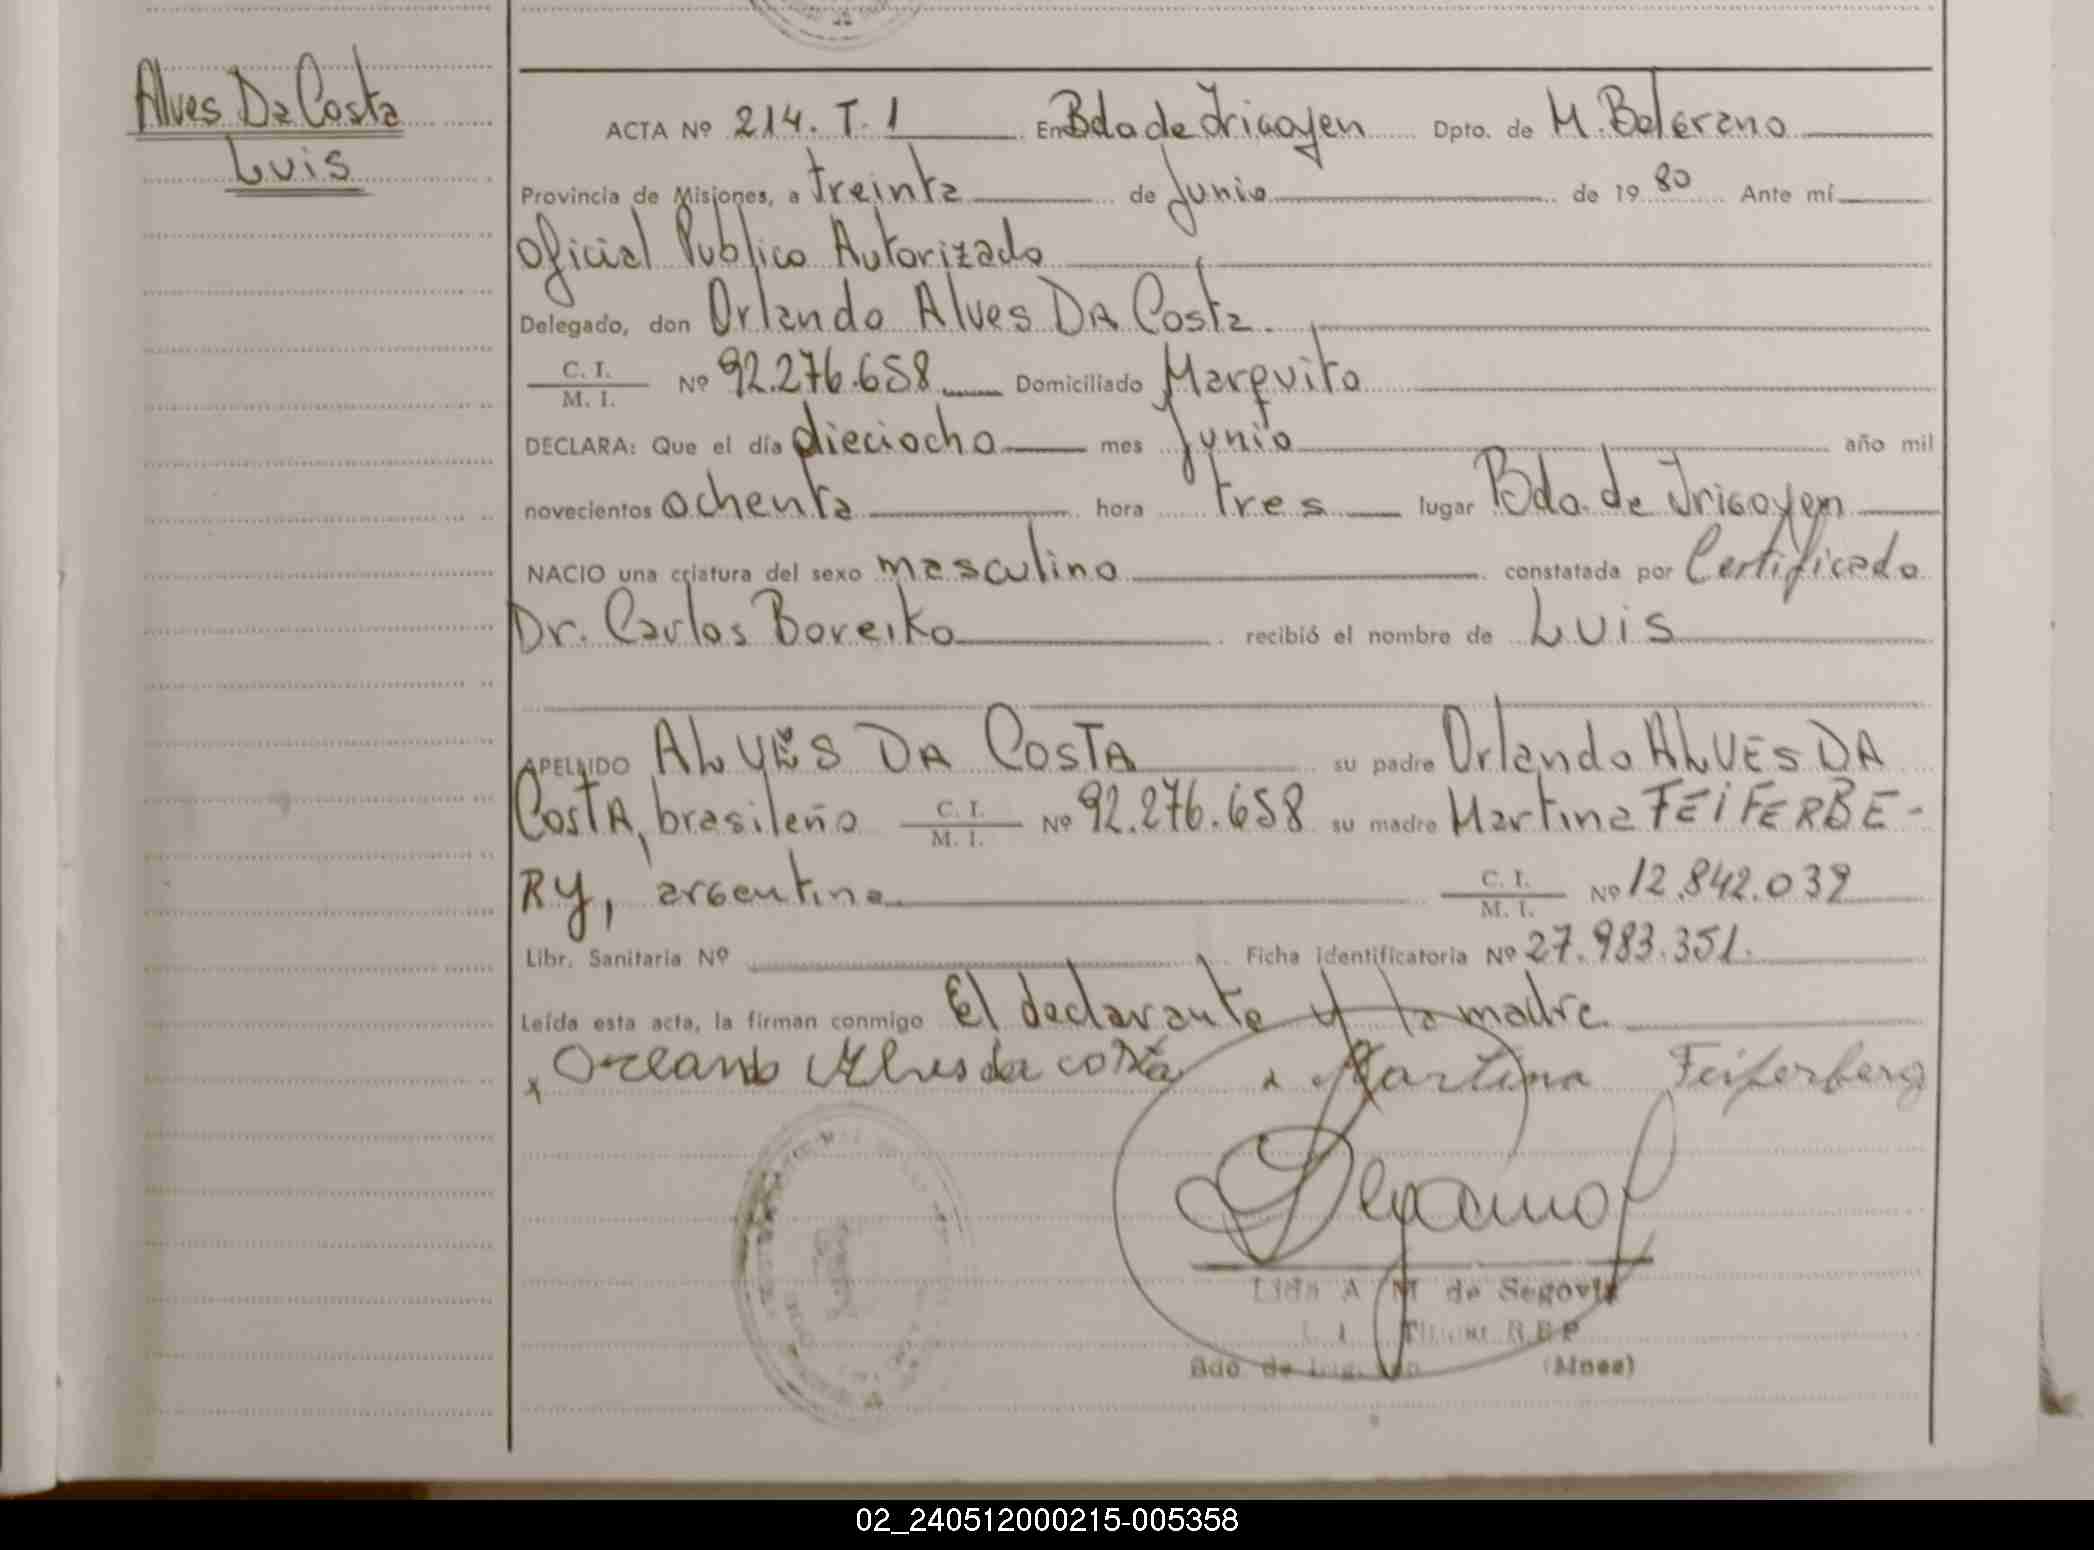 Alves Da Costa
Luis
ACTA Nº 214. T. 1 En Bdo de Irigoyen Dpto. de M. Belgrano
Provincia de Misiones, a treinta de Junio de 19 80 Ante mí
Oficial Publico Autorizado
Delegado, don Orlando Alves DA Costa.
C. I. / M. I. Nº 92.276.658 Domiciliado Marquito
DECLARA: Que el día dieciocho mes junio año mil
novecientos ochenta hora tres lugar Bdo. de Irigoyen
NACIO una criatura del sexo masculino constatada por Certificado
Dr. Carlos Boreiko recibió el nombre de Luis
APELLIDO ALVES DA COSTA su padre Orlando ALVES DA
COSTA, brasileño C. I. / M. I. Nº 92.276.658 su madre Martina FEIFERBE-
RY, argentina C. I. / M. I. Nº 12.842.039
Libr. Sanitaria Nº Ficha Identificatoria Nº 27.983.351.
Leída esta acta, la firman conmigo El declarante y la madre.
x Orlando Alves da costa x Martina Feiferberg
Lida A M de Segovia
(Mnes)
02_240512000215-005358